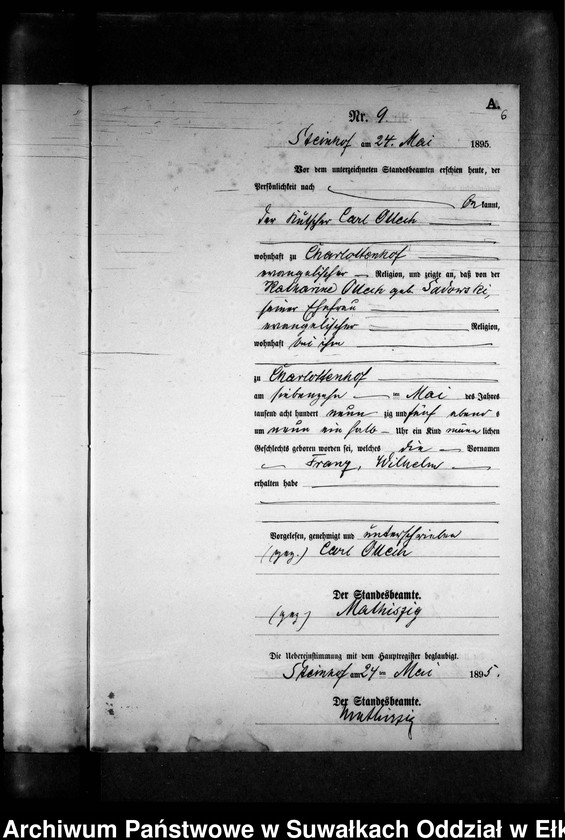 A.
6
Nr. 9.
Steinhof am 24. Mai 1895.
Vor dem unterzeichneten Standesbeamten erschien heute, der
Persönlichkeit nach
be kannt,
der Kutscher Carl Olech
wohnhaft zu Charlottenhof
evangelischer Religion, und zeigte an, daß von der
Katharine Olech geb. Sadowski,
seiner Ehefrau
evangelischer Religion,
wohnhaft bei ihm
zu Charlottenhof
am siebenzehn ten Mai des Jahres
tausend acht hundert neun zig und fünf abend s
um neun ein halb Uhr ein Kind männ lichen
Geschlechts geboren worden sei, welches die Vornamen
Franz, Wilhelm
erhalten habe
Vorgelesen, genehmigt und unterschrieben
(gez.) Carl Olech
Der Standesbeamte.
(gez) Mathiszig
Die Uebereinstimmung mit dem Hauptregister beglaubigt.
Steinhof am 24 ten Mai 1895.
Der Standesbeamte.
Mathiszig
Archiwum Państwowe w Suwałkach Oddział w Ełk